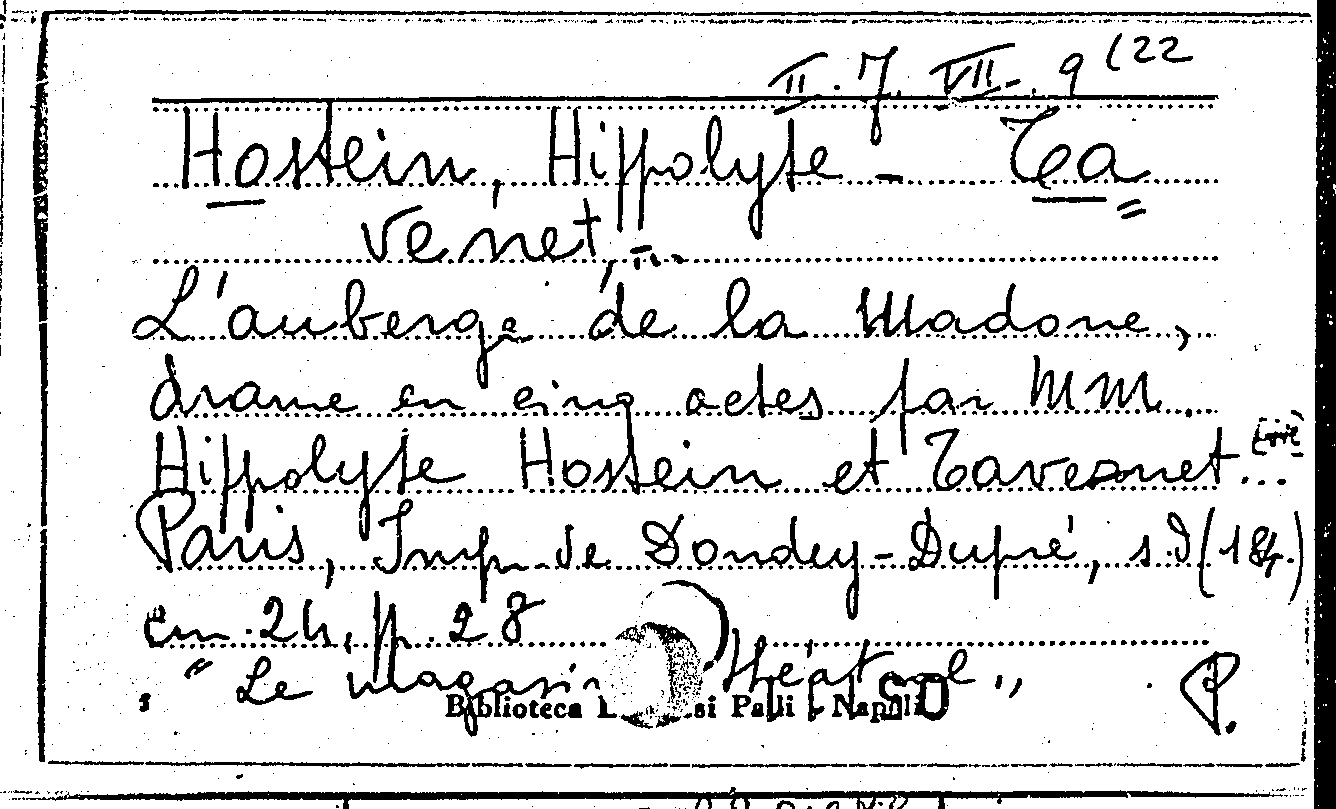 II. 7. VII. 9 (22
Hostein, Hippolyte - Ta
venet, ...
L'auberge de la Madone,
drame en cinq actes par MM.
Hippolyte Hostein et Tavernet ...
Paris, Imp. de Dondey-Dupré, s.d (184.)
cm. 24, p. 28
"Le magasin théatral"
P.
Biblioteca L si Palli - Napoli